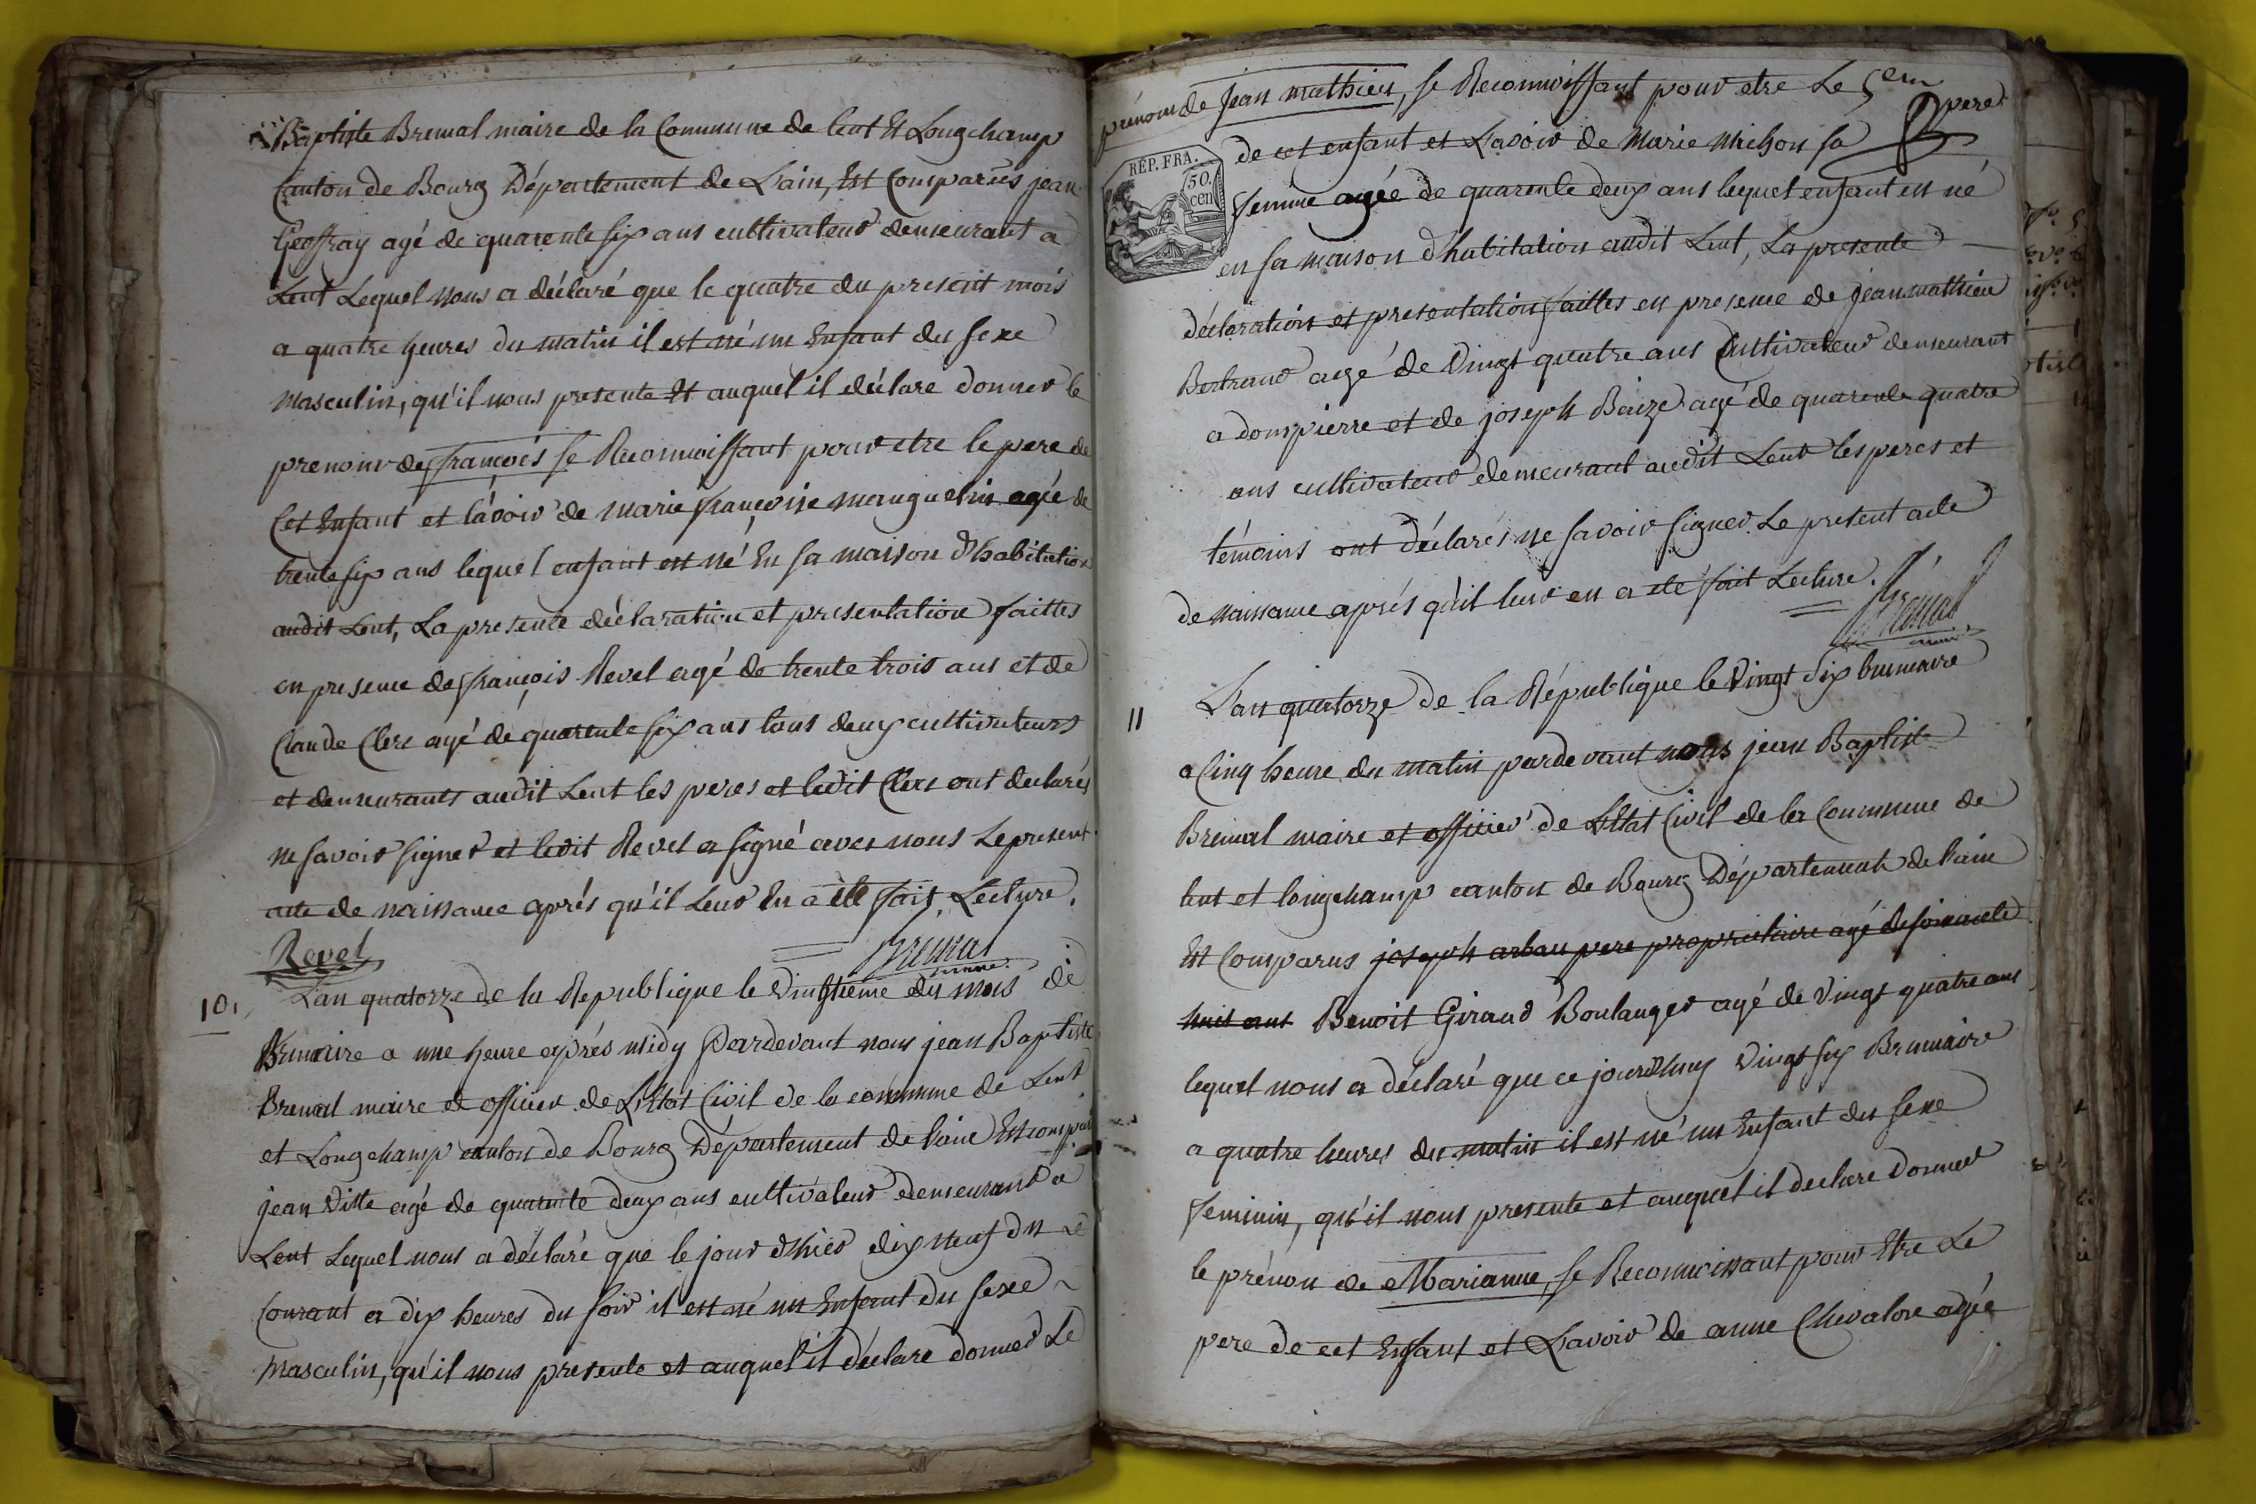 Baptiste Bremal maire de la Commune de lent Et Longchamp
Canton de Bourg Département de L'ain, Est Comparus jean
Geoffray agé de quarente six ans cultivateur demeurant a
Lent Lequel nous a déclaré que le quatre du present mois
a quatre heures du matin il est né un Enfant du sexe
masculin, qu'il nous presente Et auquel il déclare donner le
prenom de françois se Reconnoissant pour etre le pere de
Cet Enfant et l'avoir de marie françoise mauguetin agée de
trente six ans lequel enfant est né En sa maison d'habitation
audit Lent, La presente déclaration et presentation faittes
en presence de françois Revel agé de trente trois ans et de
Claude Clerc agé de quarente six ans tous deux cultivateurs
et demeurants audit Lent les peres et ledit Clerc ont declarés
ne savoir signer et ledit Revel a signé avec nous Le present
acte de naissance aprés qu'il Leur En a èté fait Lecture.
Revel Bremal
maire
10. L'an quatorze de la Republique le vingtième du mois de
Brumaire a une heure aprés midy Pardevant nous jean Baptiste
Bremal maire et officier de L'Etat Civil de la commune de Lent
et Longchamp canton de Bourg Département de l'ain Est comparu
jean Vitte agé de quarente deux ans cultivateur demeurant a
Lent Lequel nous a déclaré que le jour d'hier dix neuf du
Courant a dix heures du soir il est né un Enfant du sexe
masculin, qu'il nous presente et auquel il déclare donner Le
prénom de Jean mathieu, se Reconnoissant pour etre Le pere
5em
RÉP. FRA.
50.
cen
de cet enfant et L'avoir de Marie Michon sa
femme agée de quarente deux ans lequel enfant est né
en sa maison d'habitation audit Lent, La presente
déclaration et presentation faittes en presence de jean mathieu
Bertrand agé de Vingt quatre ans Cultivateur demeurant
a dompierre et de joseph Baize agé de quarente quatre
ans cultivateur demeurant audit Lent les peres et
témoins ont déclarés ne savoir signer Le present acte
de naissance aprés qu'il leur en a èté fait Lecture.
Bremal
maire
11 L'an quatorze de la République le Vingt six brumaire
a Cinq heure du matin pardevant nous jean Baptiste
Bremal maire et officier de L'Etat Civil de la Commune de
lent et longchamp canton de Bourg Département de l'ain
Est Comparus joseph arban pere propriétaire agé de soixante
huit ans Benoit Giraud Boulanger agé de Vingt quatre ans
lequel nous a déclaré que ce jourd'huy Vingt six Brumaire
a quatre heures du matin il est né un Enfant du sexe
feminin, qu'il nous presente et auquel il declare donner
le prénon de Marianne, se Reconnoissant pour Etre Le
pere de cet Enfant et L'avoir de anne Chevalon agée